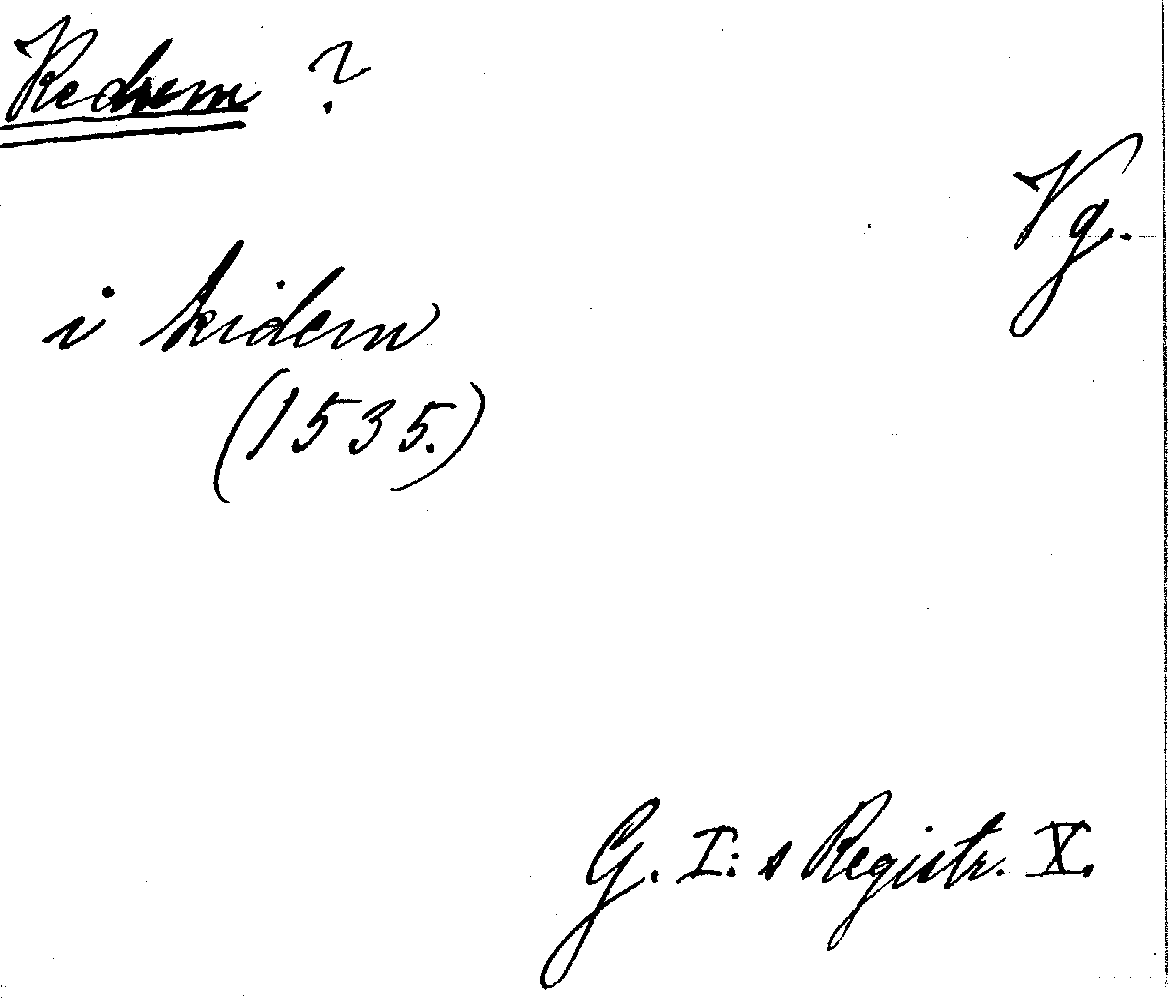 Redhem ?
Vg.
i kidem
(1535.)
G. I:s Registr. X.